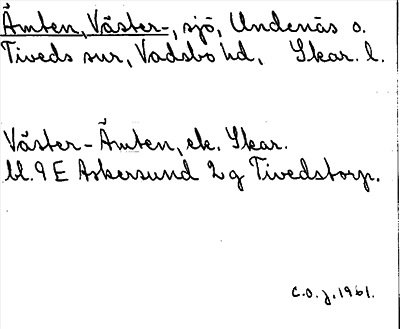 Ämten, Väster-, sjö, Undenäs o.
Tiveds snr, Vadsbo hd, Skar. l.
Väster-Ämten, ek. Skar.
bl. 9 E Askersund 2 g Tivedstorp.
C.O.J. 1961.